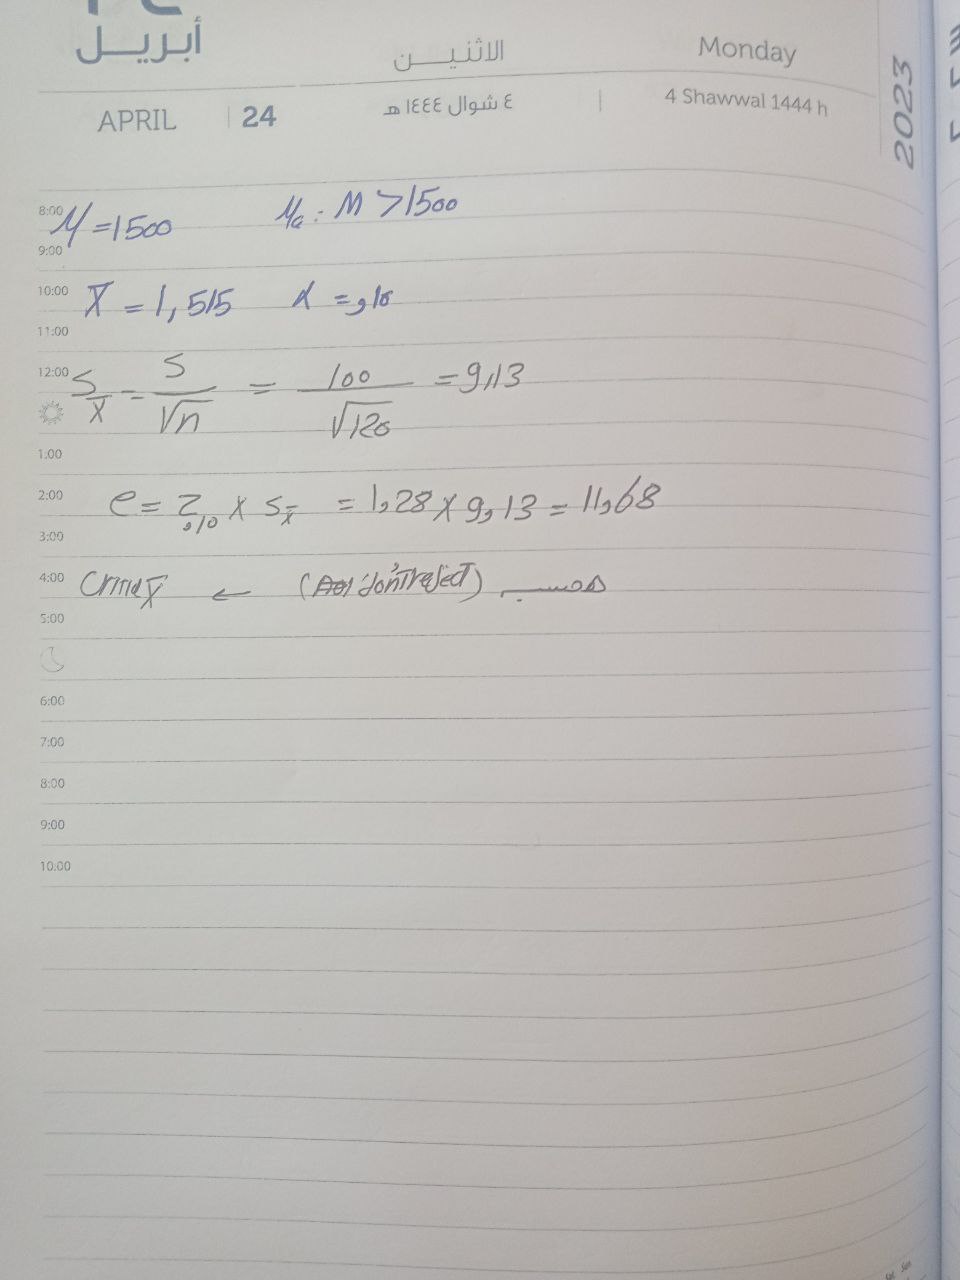 أبريل
الاثنين
Monday
APRIL 24
٤ شوال ١٤٤٤ هـ
4 Shawwal 1444 h
2023
8:00 M = 1500 Ha : M > 1500
9:00
10:00 X̅ = 1,515 α = ,10
11:00
12:00 S x̅ = S / √n = 100 / √120 = 9,13
1:00
2:00 e = Z ,10 X S x̅ = 1,28 X 9,13 = 11,68
3:00
4:00 ← (don't reject)
5:00
6:00
7:00
8:00
9:00
10:00